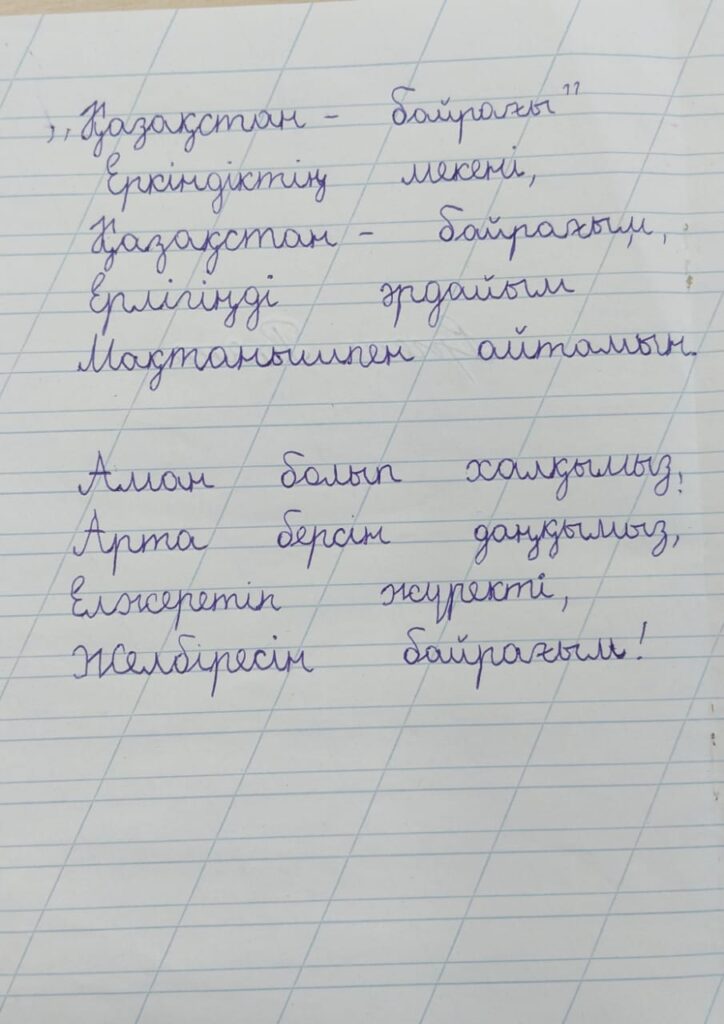 „Қазақстан - байрағы"
Еркіндіктің мекені,
Қазақстан - байрағым,
Ерлігіңді әрдайым
Мақтанышпен айтамын.
Аман болып халқымыз,
Арта берсін даңқымыз,
Елжеретіп жүректі,
Желбіресін байрағым!